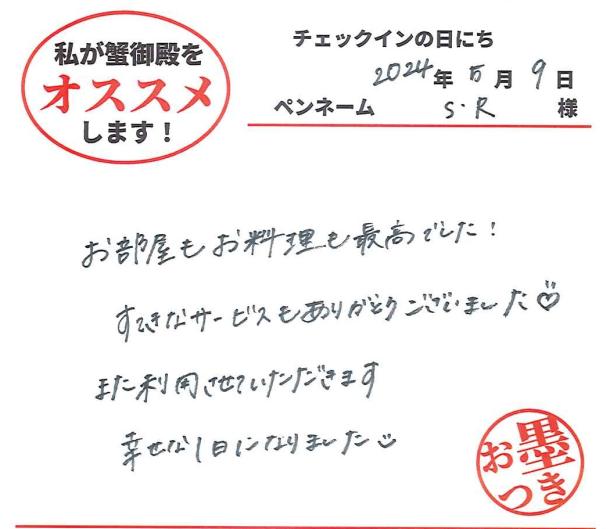 私が蟹御殿を
オススメ
します！
チェックインの日にち
2024年5月9日
ペンネーム S・R 様
お部屋もお料理も最高でした！
すてきなサービスもありがとうございました♡
また利用させていただきます
幸せな1日になりました
お墨
つき